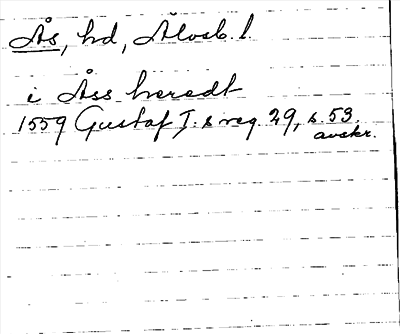 Ås, hd, Älvsb. l.
i Åss heredt
1559 Gustaf I:s reg. 29, s. 53.
avskr.